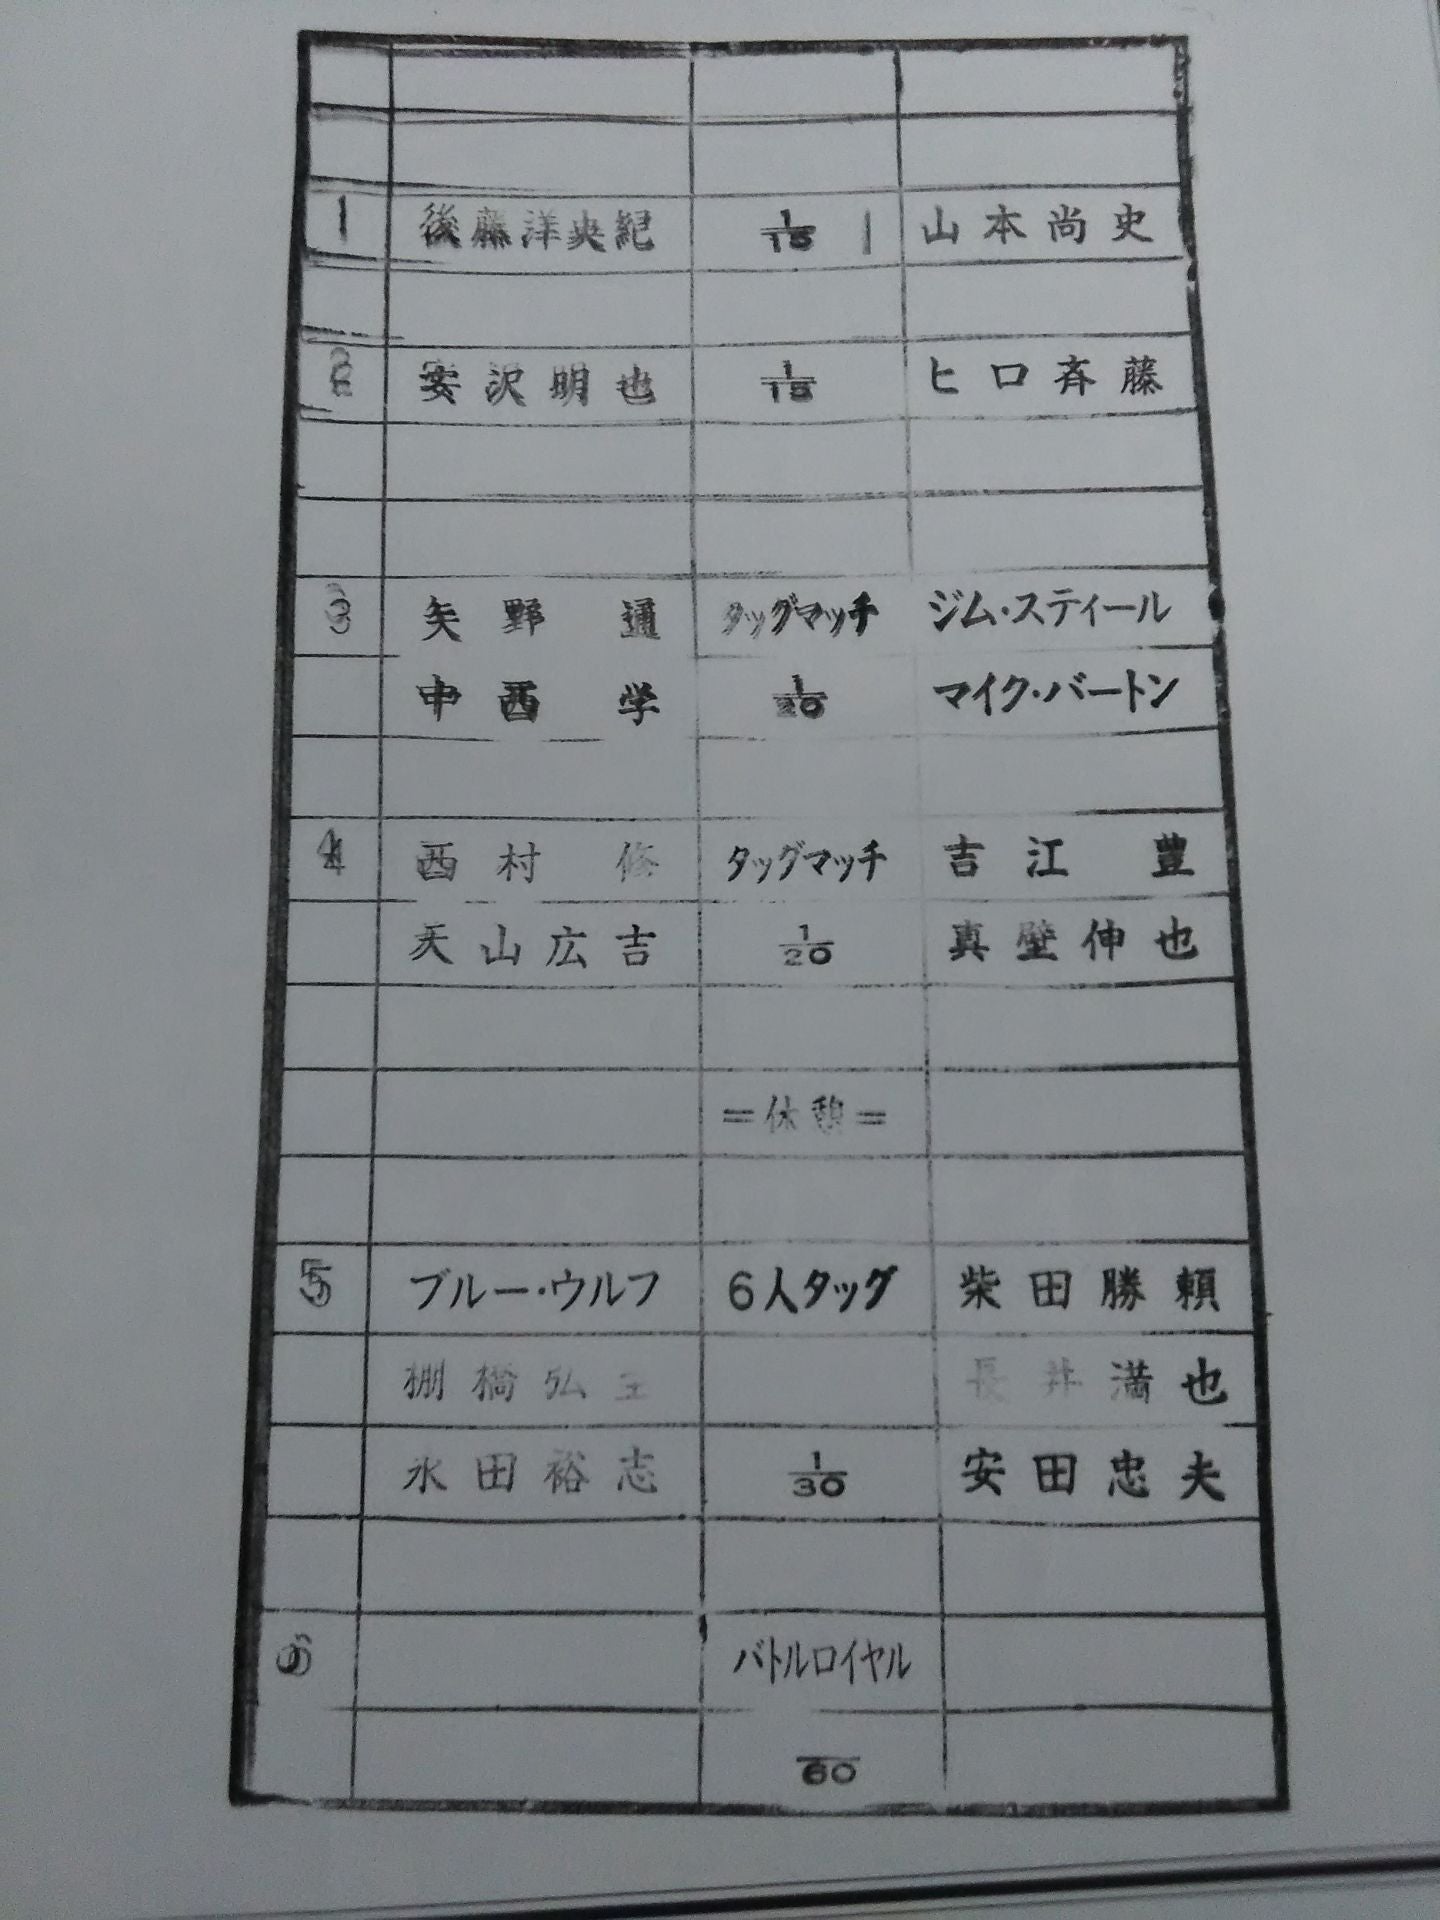 1 後藤洋央紀 1/15 山本尚史
2 安沢明也 1/15 ヒロ斉藤
3 矢野 通 タッグマッチ ジム・スティール
中西 学 1/20 マイク・バートン
4 西村 修 タッグマッチ 吉江 豊
天山広吉 1/20 真壁伸也
=休憩=
5 ブルー・ウルフ 6人タッグ 柴田勝頼
棚橋弘至 長井満也
永田裕志 1/30 安田忠夫
6 バトルロイヤル
60